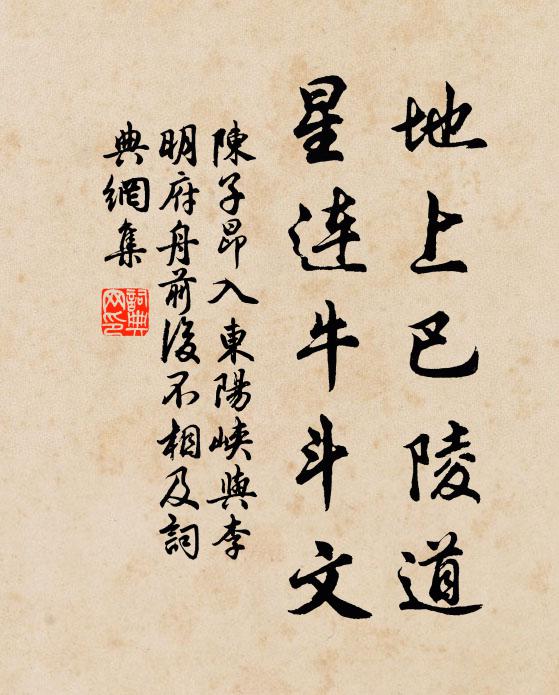 地上巴陵道
星连牛斗文
陳子昂入東陽峽與李
明府舟前後不相及詞
典網集
詞典网印